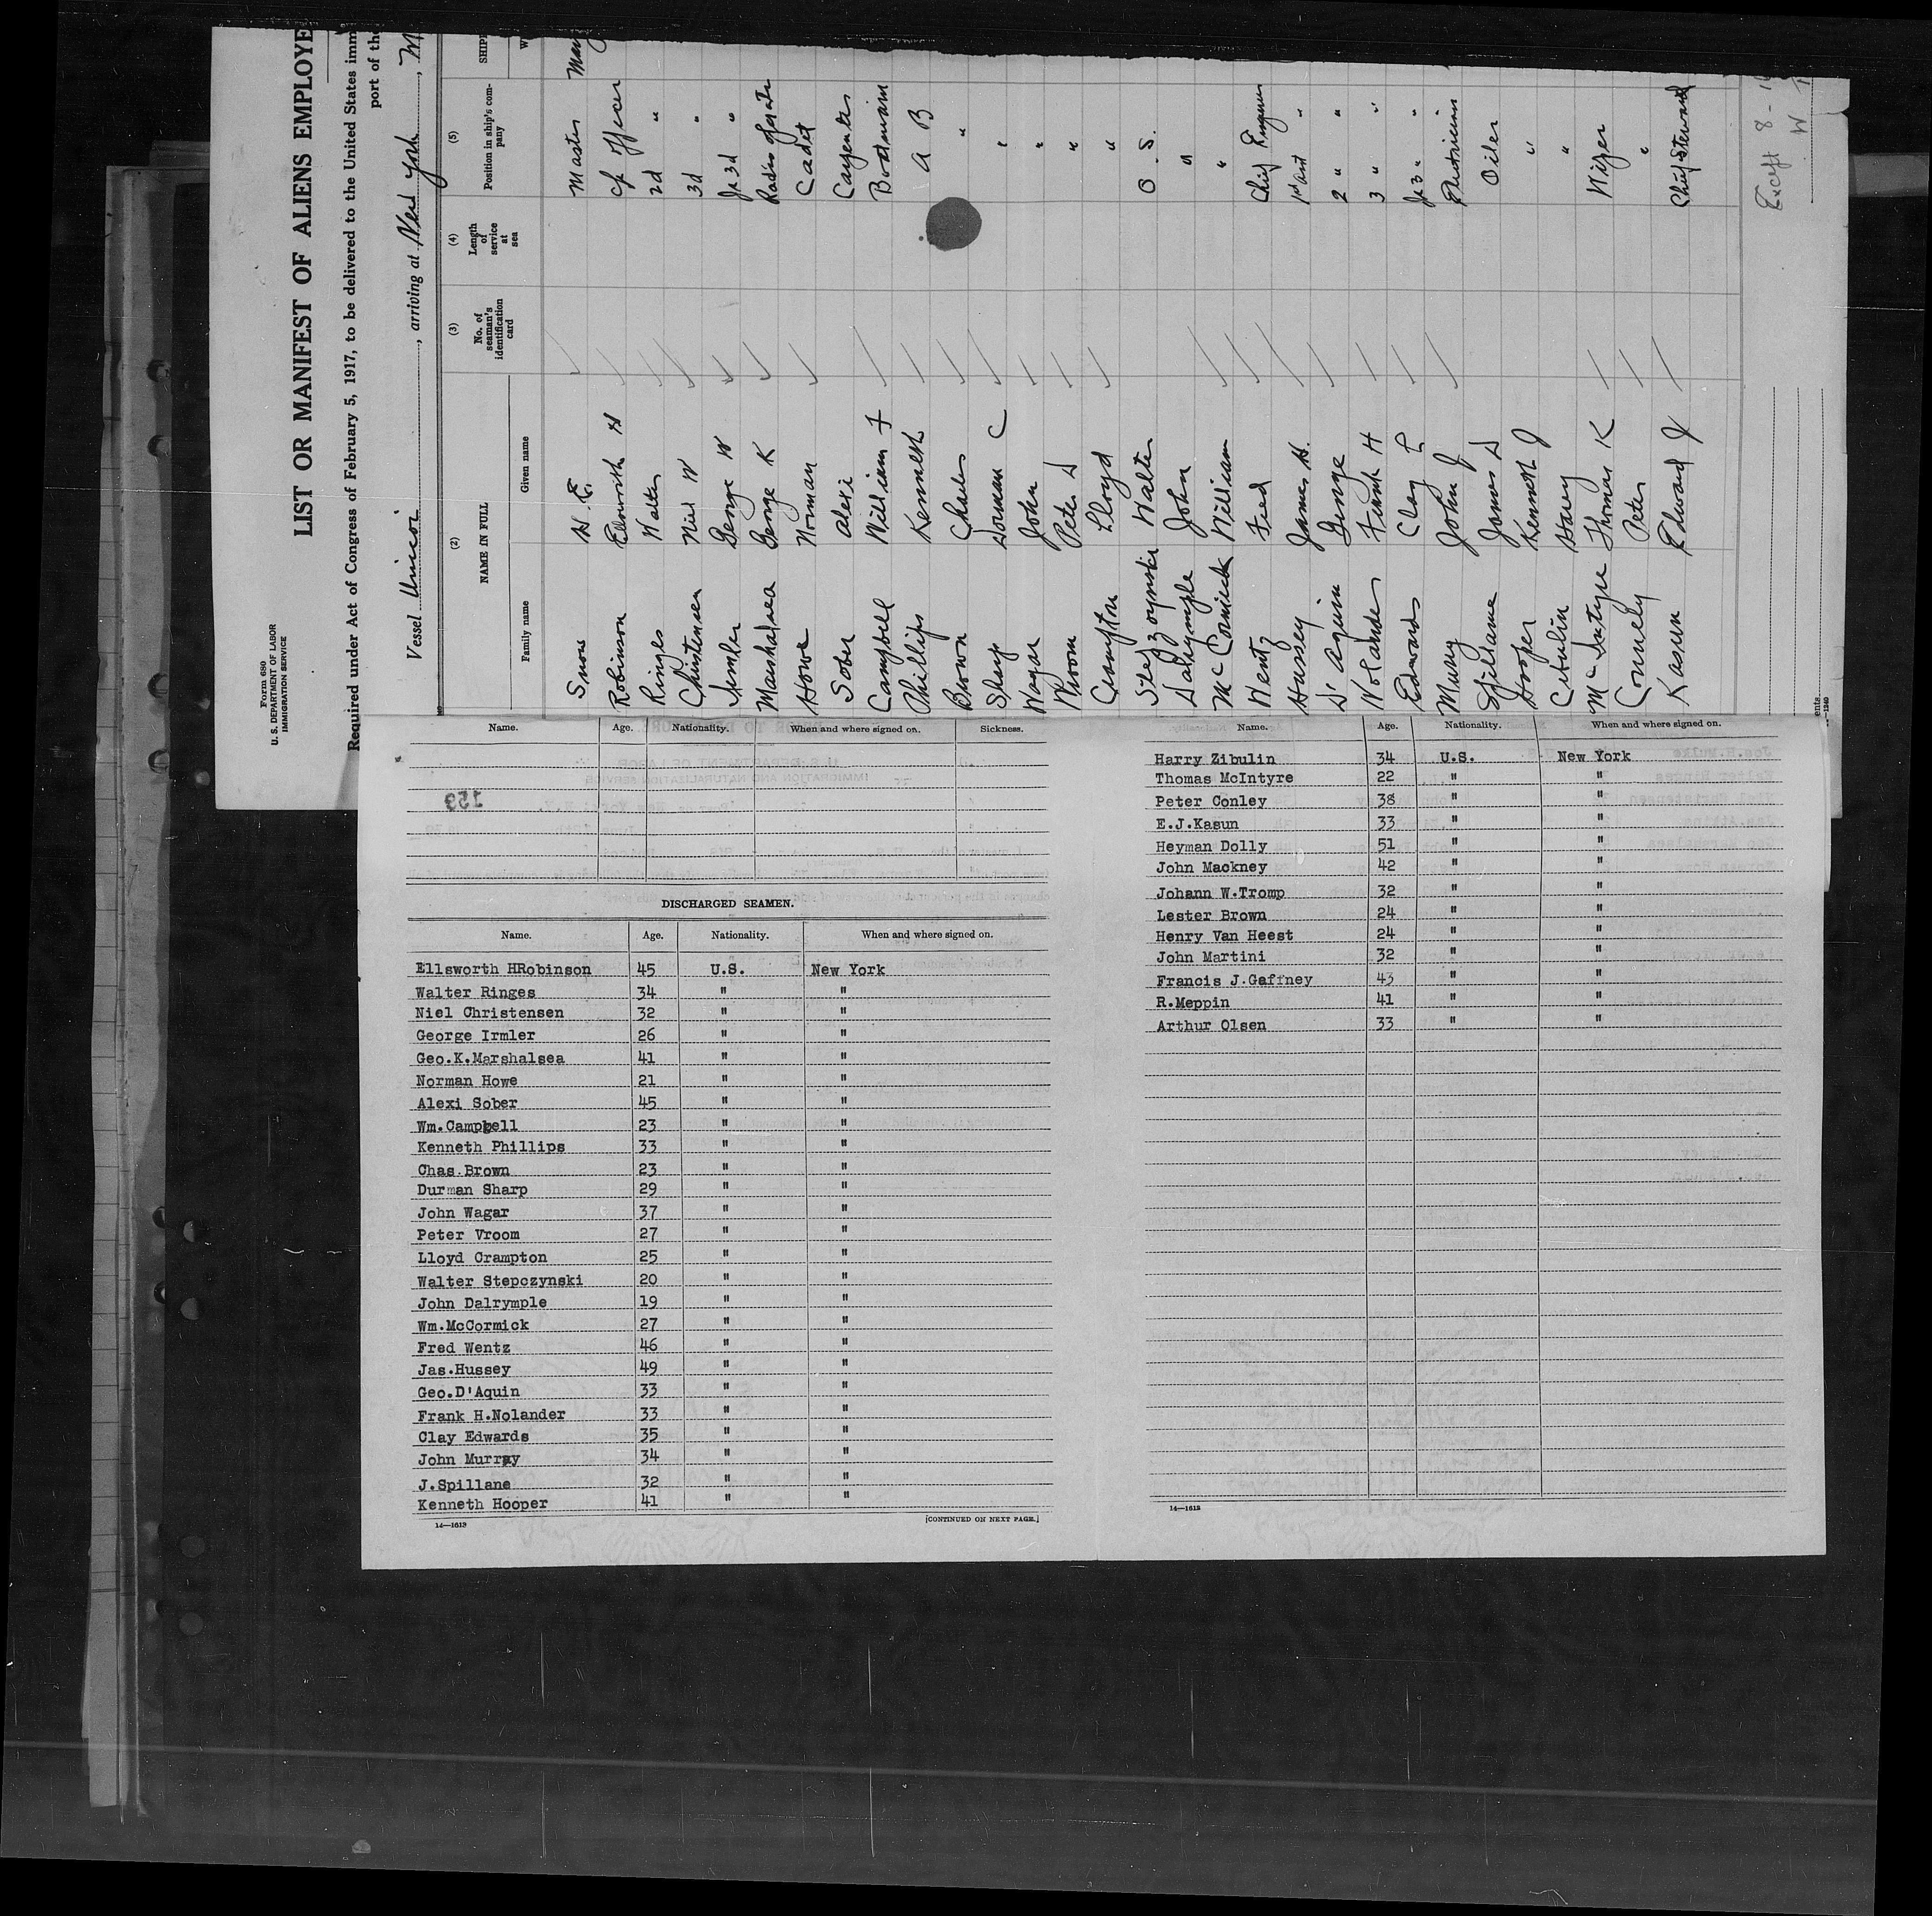 Form 680
U. S. DEPARTMENT OF LABOR
IMMIGRATION SERVICE
LIST OR MANIFEST OF ALIENS EMPLOYE
Required under Act of Congress of February 5, 1917, to be delivered to the United States imm
port of the
Vessel Unicoi, arriving at New York
(2) (3) (4) (5)
NAME IN FULL No. of seaman's identification card Length of service at sea Position in ship's company SHIPP
Family name Given name
Snow H. E. Master
Robinson Ellsworth H Ch Officer
Ringes Walter 2d "
Christensen Niel W 3d "
Irmler George W Jr 3d "
Marshalsea George K Radio Operator
Howe Norman Cadet
Sober Alexi Carpenter
Campbell William F Boatswain
Phillips Kenneth A B
Brown Charles "
Sharp Durman C "
Wagar John "
Vroom Peter D "
Crampton Lloyd "
Stepczynski Walter O. S.
Dalrymple John "
McCormick William "
Wentz Fred Chief Engineer
Hussey James H. 1st Asst "
D'Aquin George 2 " "
Nolander Frank H 3 " "
Edwards Clay L Jr 3 " "
Murry John J Electrician
Spillane James D Oiler
Hooper Kenneth J "
Cibulin Harry "
McIntyre Thomas K Wiper
Connely Peter "
Kasun Edward J Chief Steward
Except 8 - 1
Name. Age. Nationality. When and where signed on. Sickness.
159
DISCHARGED SEAMEN.
Name. Age. Nationality. When and where signed on.
Ellsworth HRobinson 45 U.S. New York
Walter Ringes 34 " "
Niel Christensen 32 " "
George Irmler 26 " "
Geo.K.Marshalsea 41 " "
Norman Howe 21 " "
Alexi Sober 45 " "
Wm.Campbell 23 " "
Kenneth Phillips 33 " "
Chas.Brown 23 " "
Durman Sharp 29 " "
John Wagar 37 " "
Peter Vroom 27 " "
Lloyd Crampton 25 " "
Walter Stepczynski 20 " "
John Dalrymple 19 " "
Wm.McCormick 27 " "
Fred Wentz 46 " "
Jas.Hussey 49 " "
Geo.D'Aquin 33 " "
Frank H.Nolander 33 " "
Clay Edwards 35 " "
John Murray 34 " "
J.Spillane 32 " "
Kenneth Hooper 41 " "
14—1613 [CONTINUED ON NEXT PAGE.]
Name. Age. Nationality. When and where signed on.
Harry Zibulin 34 U.S. New York
Thomas McIntyre 22 " "
Peter Conley 38 " "
E.J.Kasun 33 " "
Heyman Dolly 51 " "
John Mackney 42 " "
Johann W.Tromp 32 " "
Lester Brown 24 " "
Henry Van Heest 24 " "
John Martini 32 " "
Francis J.Gaffney 43 " "
R.Meppin 41 " "
Arthur Olsen 33 " "
14—1613